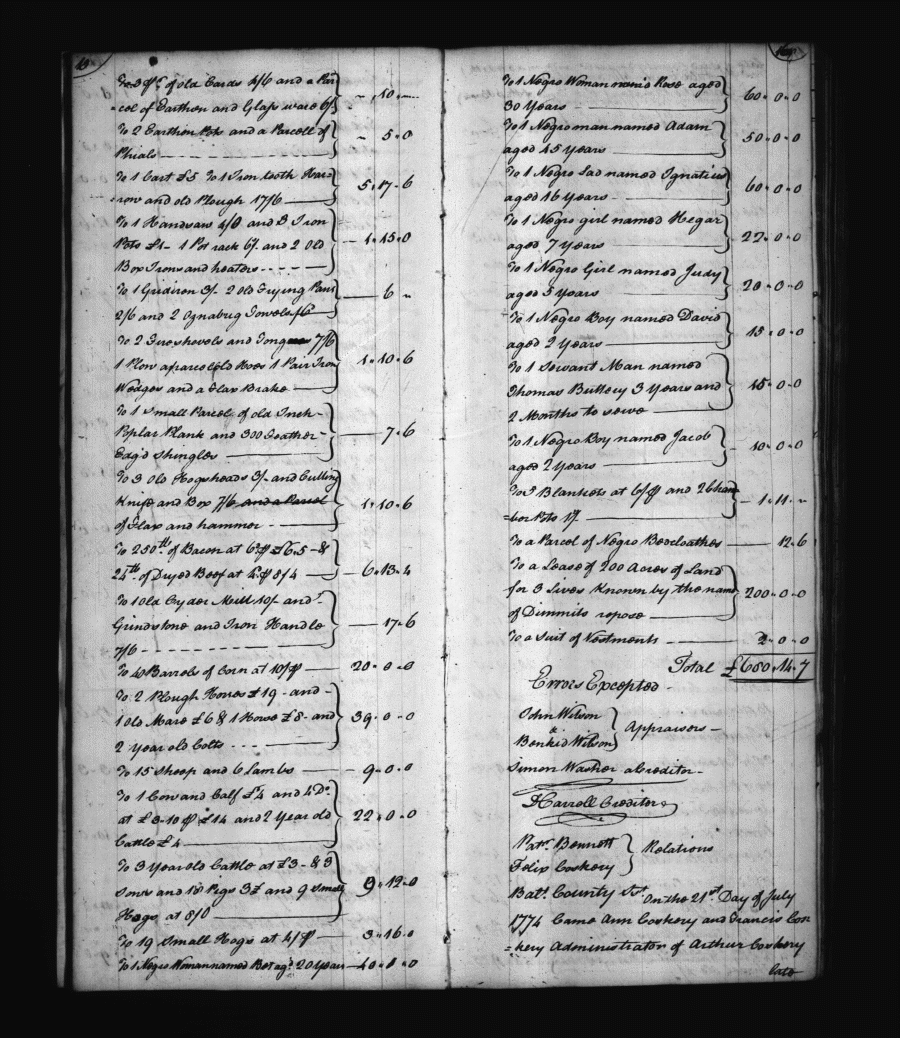 To 3 pr. of old Cards 4/6 and a Par
=cel of Earthen and Glass ware 6/ - " 10 "
To 2 Earthen Pots and a Parcell of
Phials - " 5 " 0
To 1 Cart £5 To 1 Iron tooth Harr
=row and old Plough 17/6 5 " 17 " 6
To 1 Handsaw 4/0 and 3 Iron
Pots £1 - 1 Pot rack 6/ and 2 old 1 " 15 " 0
Box Irons and heaters
To 1 Gridiron 3/- 2 old Frying Pans
2/6 and 2 Oznabrig Towels /6 6 "
To 2 Fire shovels and Tongs 7/6
1 Plow a parcel old Hoes 1 Pair Iron 1 " 10 " 6
Wedges and a Flax Brake
To 1 small Parcel of old Inch
Poplar Plank and 300 Feather 7 " 6
Edg'd Shingles
To 3 old Hogsheads 3/- and Cutting
Knife and Box 7/6 and a Parcel 1 " 10 " 6
of Flax and hammer
To 250 lb. of Bacon at 6d p £6.5 - &
25 lb. of Dryed Beef at 4d p 8/4 6 " 13 " 4
To 1 old Cyder Mill 10/- and
Grindstone and Iron Handle 17 " 6
7/6
To 40 Barrels of Corn at 10/ p 20 " 0 " 0
To 2 Plough Horses £19 - and
1 old Mare £6 & 1 Horse £8 - and 39 " 0 " 0
2 year old Colts
To 15 Sheep and 6 lambs 9 " 0 " 0
To 1 Cow and Calf £4 and 4 Do.
at £3-10 p £14 and 2 Year old 22 " 0 " 0
Cattle £4
To 3 Year old Cattle at £3 - & 3
Sows and 18 Pigs 3£ and 9 small 9 " 12 " 0
Hogs at 8/0
To 19 Small Hogs at 4/ p 3 " 16 " 0
To 1 Negro Woman named Bet agd. 20 Years 40 " 0 " 0
To 1 Negro Woman nam'd Rose aged
30 Years 60 " 0 " 0
To 1 Negro man named Adam
aged 45 Years 50 " 0 " 0
To 1 Negro Lad named Ignatius
aged 16 Years 60 " 0 " 0
To 1 Negro girl named Hegar
aged 7 Years 27 " 0 " 0
To 1 Negro Girl named Judy
aged 5 Years 20 " 0 " 0
To 1 Negro Boy named David
aged 2 Years 15 " 0 " 0
To 1 Servant Man named
Thomas Buttery 3 Years and 15 " 0 " 0
2 Months to serve
To 1 Negro Boy named Jacob
aged 2 Years 10 " 0 " 0
Blankets at 6/ p and 2 Cham
=ber Pots 1/ 1 " 11 "
To a Parcel of Negro Bedcloathes 12 " 6
To a Lease of 200 Acres of Land
for 3 Lives Known by the name 200 " 0 " 0
of Dimmits repose
To a Suit of Vestments 2 " 0 " 0
Total £680 " 14 " 7
Errors Excepted
John Wilson
& Appraisers
Benkid Wilson
Simon Washer a Creditor
Harroll Creditor
Patr. Bennett
Relations
Felix Coskery
Balt. County Sst. On the 21st Day of July
1774 Came Ann Coskery and Francis Cos
=kery Administrator of Arthur Coskery
late